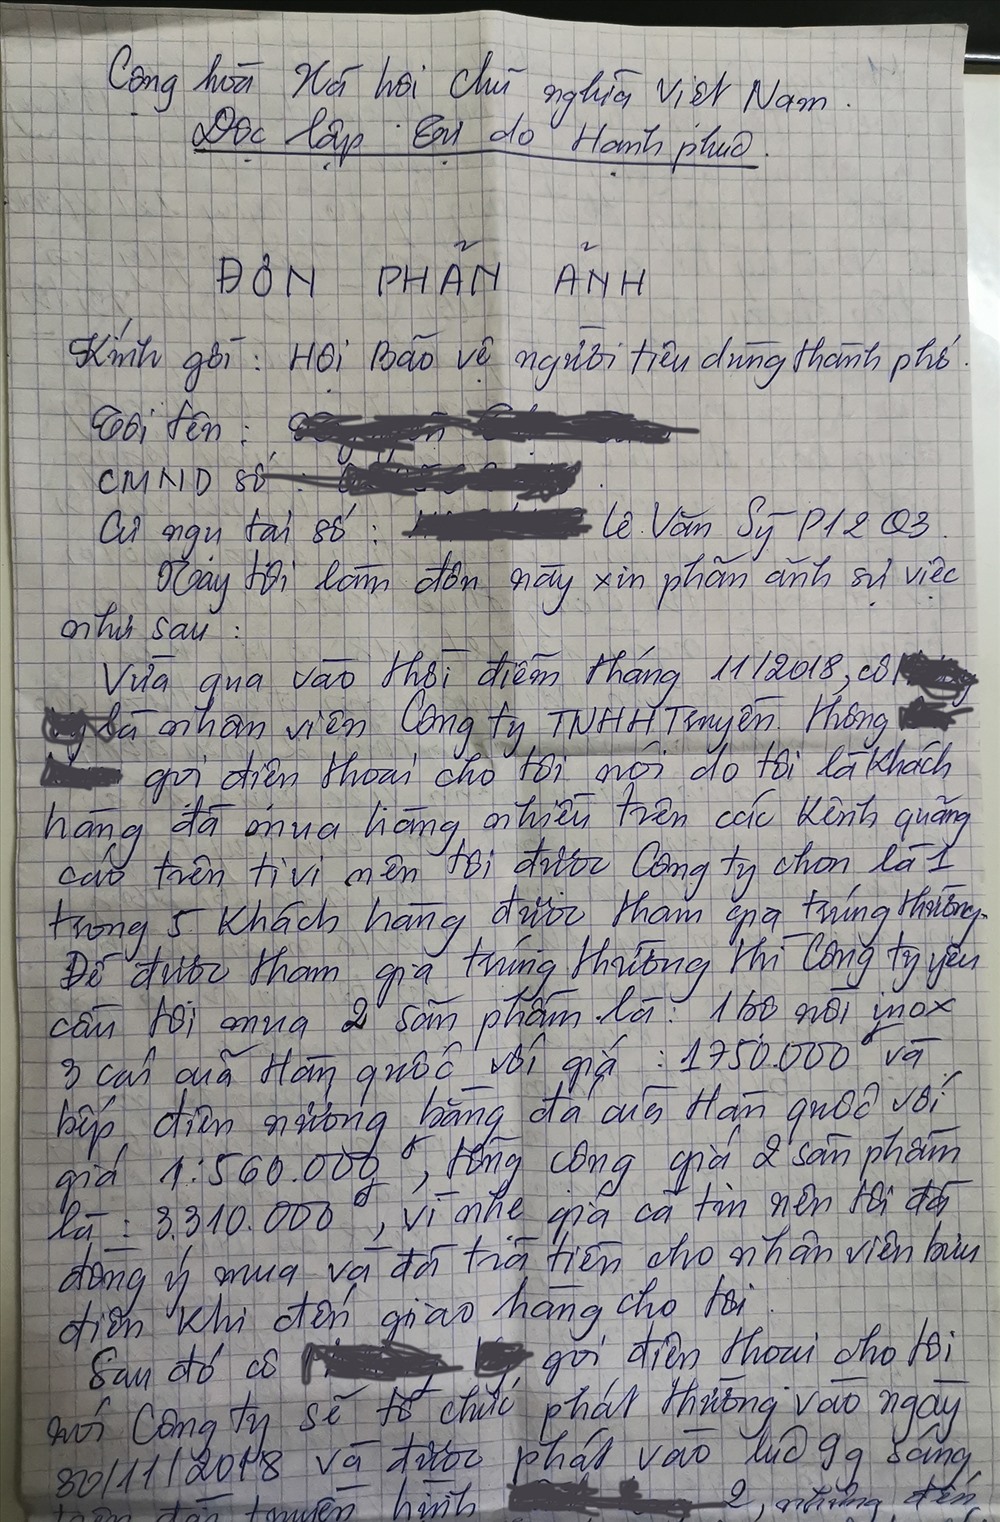 Cộng hòa Xã hội Chủ nghĩa Việt Nam.
Độc lập Tự do Hạnh phúc.
ĐƠN PHẢN ẢNH
Kính gởi: Hội Bảo vệ người tiêu dùng thành phố.
Tôi tên:
CMND số:
Cư ngụ tại số: Lê Văn Sỹ P12 Q3.
Nay tôi làm đơn này xin phản ảnh sự việc
như sau:
Vừa qua vào thời điểm tháng 11/2018, cô
là nhân viên Công ty TNHH Truyền thông
gọi điện thoại cho tôi nói do tôi là khách
hàng đã mua hàng nhiều trên các kênh quảng
cáo trên ti vi nên tôi được Công ty chọn là 1
trong 5 khách hàng được tham gia trúng thưởng.
Để được tham gia trúng thưởng thì Công ty yêu
cầu tôi mua 2 sản phẩm là: 1 bộ nồi inox
3 cái của Hàn quốc với giá: 1750.000đ và
bếp điện nướng bằng đá của Hàn quốc với
giá 1.560.000đ, tổng cộng giá 2 sản phẩm
là: 3.310.000đ, vì nhẹ giạ cả tin nên tôi đã
đồng ý mua và đã trả tiền cho nhân viên bưu
điện khi đến giao hàng cho tôi.
Sau đó cô gọi điện thoại cho tôi
nói Công ty sẽ tổ chức phát thưởng vào ngày
30/11/2018 và được phát vào lúc 9g sáng
trên đài truyền hình 2, nhưng đến